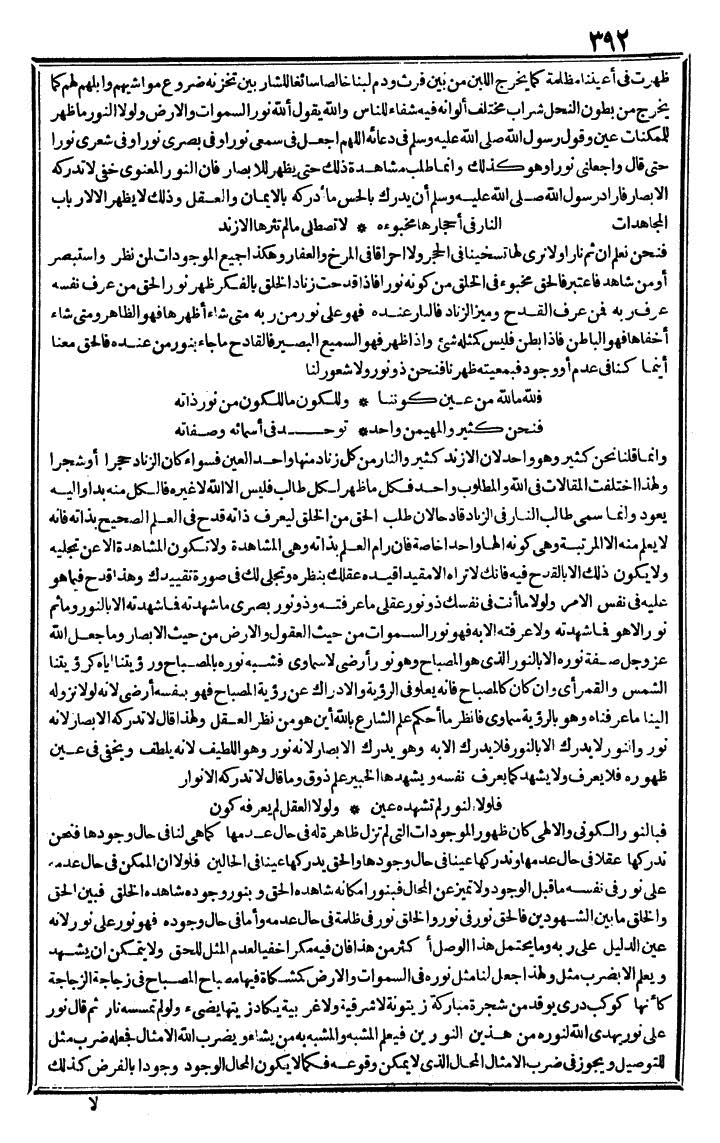 ٣٩٢
ظهرت فى أعيننا مظلمة كما يخرج اللبن من بين فرث ودم لبنا خالصا سائغا للشاربين تخزنه ضروع مواشيهم وابلهم لهم كما
يخرج من بطون النحل شراب مختلف ألوانه فيه شفاء للناس والله يقول ألله نور السموات والارض ولولا النور ما ظهر
للممكنات عين وقول رسول الله صلى الله عليه وسلم فى دعائه اللهم اجعل فى سمعى نورا وفى بصرى نورا وفى شعرى نورا
حتى قال واجعلنى نورا وهو كذلك وانما طلب مشاهدة ذلك حتى يظهر للابصار فان النور المعنوى خفى لا تدركه
الابصار فاراد رسول الله صلى الله عليه وسلم أن يدرك بالحس ما أدركه بالايمان والعقل وذلك لا يظهر الالارباب
المجاهدات النار فى أحجارها مخبوءه * لا تصطلى مالم تثرها الازند
فنحن نعلم ان ثم نارا ولا نرى لها تسخينا فى الحجر ولا احراقا فى المرخ والعفار وهكذا جميع الموجودات لمن نظر واستبصر
أو من شاهد فاعتبر فالحق مخبوء فى الخلق من كونه نورا فاذا قدحت زناد الخلق بالفكر ظهر نور الحق من عرف نفسه
عرف ربه فمن عرف القدح وميز الزناد فالنار عنده فهو على نور من ربه متى شاء أظهرها فهو الظاهر ومتى شاء
أخفاها فهو الباطن فاذا بطن فليس كمثله شئ واذا ظهر فهو السميع البصير فالقادح ما جاء بنور من عنده فالحق معنا
أينما كنا فى عدم أو وجود فبمعيته ظهرنا فنحن ذو نور ولا شعور لنا
فلله ما لله من عين كوننا * وللكون ما للكون من نور ذاته
فنحن كثير والمهيمن واحد * توحد فى أسمائه وصفاته
وانما قلنا نحن كثير وهو واحد لان الازند كثير والنار من كل زناد منها واحد العين فسواء كان الزناد حجرا أو شجرا
ولهذا اختلفت المقالات فى الله والمطلوب واحد فكل ما ظهر لكل طالب فليس الا الله لا غيره فالكل منه بدا واليه
يعود وانما سمى طالب النار فى الزناد قادحا لان طلب الحق من الخلق ليعرف ذاته قدح فى العلم الصحيح بذاته فانه
لا يعلم منه الا المرتبة وهى كونه الها واحدا خاصة فان رام العلم بذاته وهى المشاهدة ولا تكون المشاهدة الا عن تجليه
ولا يكون ذلك الا بالقدح فيه فانك لا تراه الا مقيدا قيده عقلك بنظره وتجلى لك فى صورة تقييدك وهذا قدح فيما هو
عليه فى نفس الامر ولولا ما أنت فى نفسك ذو نور عقلى ما عرفته وذو نور بصرى ما شهدته فما شهدته الا بالنور وما ثم
نور الا هو فما شهدته ولا عرفته الا به فهو نور السموات من حيث العقول والارض من حيث الابصار وما جعل الله
عز وجل صفة نوره الا بالنور الذى هو المصباح وهو نور أرضى لا سماوى فشبه نوره بالمصباح ورؤيتنا اياه كرؤيتنا
الشمس والقمر أى وان كان كالمصباح فانه يعلو فى الرؤية والادراك عن رؤية المصباح فهو بنفسه أرضى لانه لولا نزوله
الينا ما عرفناه وهو بالرؤية سماوى فانظر ما أحكم علم الشارع بالله أين هو من نظر العقل ولهذا قال لا تدركه الابصار لانه
نور والنور لا يدرك الا بالنور فلا يدرك الا به وهو يدرك الابصار لانه نور وهو اللطيف لانه يلطف ويخفى فى عين
ظهوره فلا يعرف ولا يشهد كما يعرف نفسه ويشهدها الخبير علم ذوق وما قال لا تدركه الانوار
فلولا النور لم تشهده عين * ولولا العقل لم يعرفه كون
فبالنور الكونى والالهى كان ظهور الموجودات التى لم تزل ظاهرة له فى حال عدمها كما هى لنا فى حال وجودها فنحن
ندركها عقلا فى حال عدمها وندركها عينا فى حال وجودها والحق يدركها عينا فى الحالين فلولا ان الممكن فى حال عدمه
على نور فى نفسه ما قبل الوجود ولا تميز عن المحال فبنور امكانه شاهده الحق وبنور وجوده شاهده الخلق فبين الحق
والخلق ما بين الشهودين فالحق نور فى نور والخلق نور فى ظلمة فى حال عدمه وأما فى حال وجوده فهو نور على نور لانه
عين الدليل على ربه وما يحتمل هذا الوصل أكثر من هذا فان فيه مكرا خفيا لعدم المثل للحق ولا يتمكن ان يشهد
ويعلم الا بضرب مثل ولهذا جعل لنا مثل نوره فى السموات والارض كمشكاة فيها مصباح المصباح فى زجاجة الزجاجة
كأنها كوكب درى يوقد من شجرة مباركة زيتونة لا شرقية ولا غربية يكاد زيتها يضىء ولو لم تمسسه نار ثم قال نور
على نور يهدى الله لنوره من هذين النورين فيعلم المشبه والمشبه به من يشاء ويضرب الله الامثال فجعله ضرب مثل
للتوصيل ويجوز فى ضرب الامثال المحال الذى لا يمكن وقوعه فكما لا يكون المحال الوجود وجودا بالفرض كذلك
لا